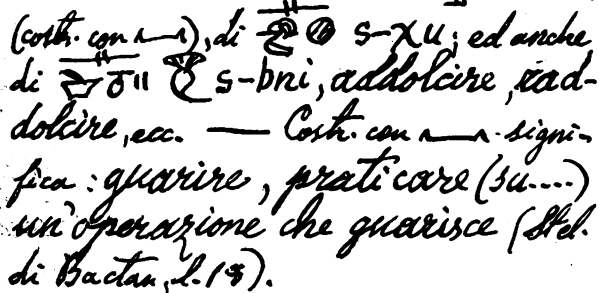 (costr. con), di s-χu; ed anche
di s-bni, addolcire, rad-
dolcire, ecc. — Costr. con signi-
fica: guarire, praticare (su....)
un'operazione che guarisce (Stel.
di Bactan, l. 18).